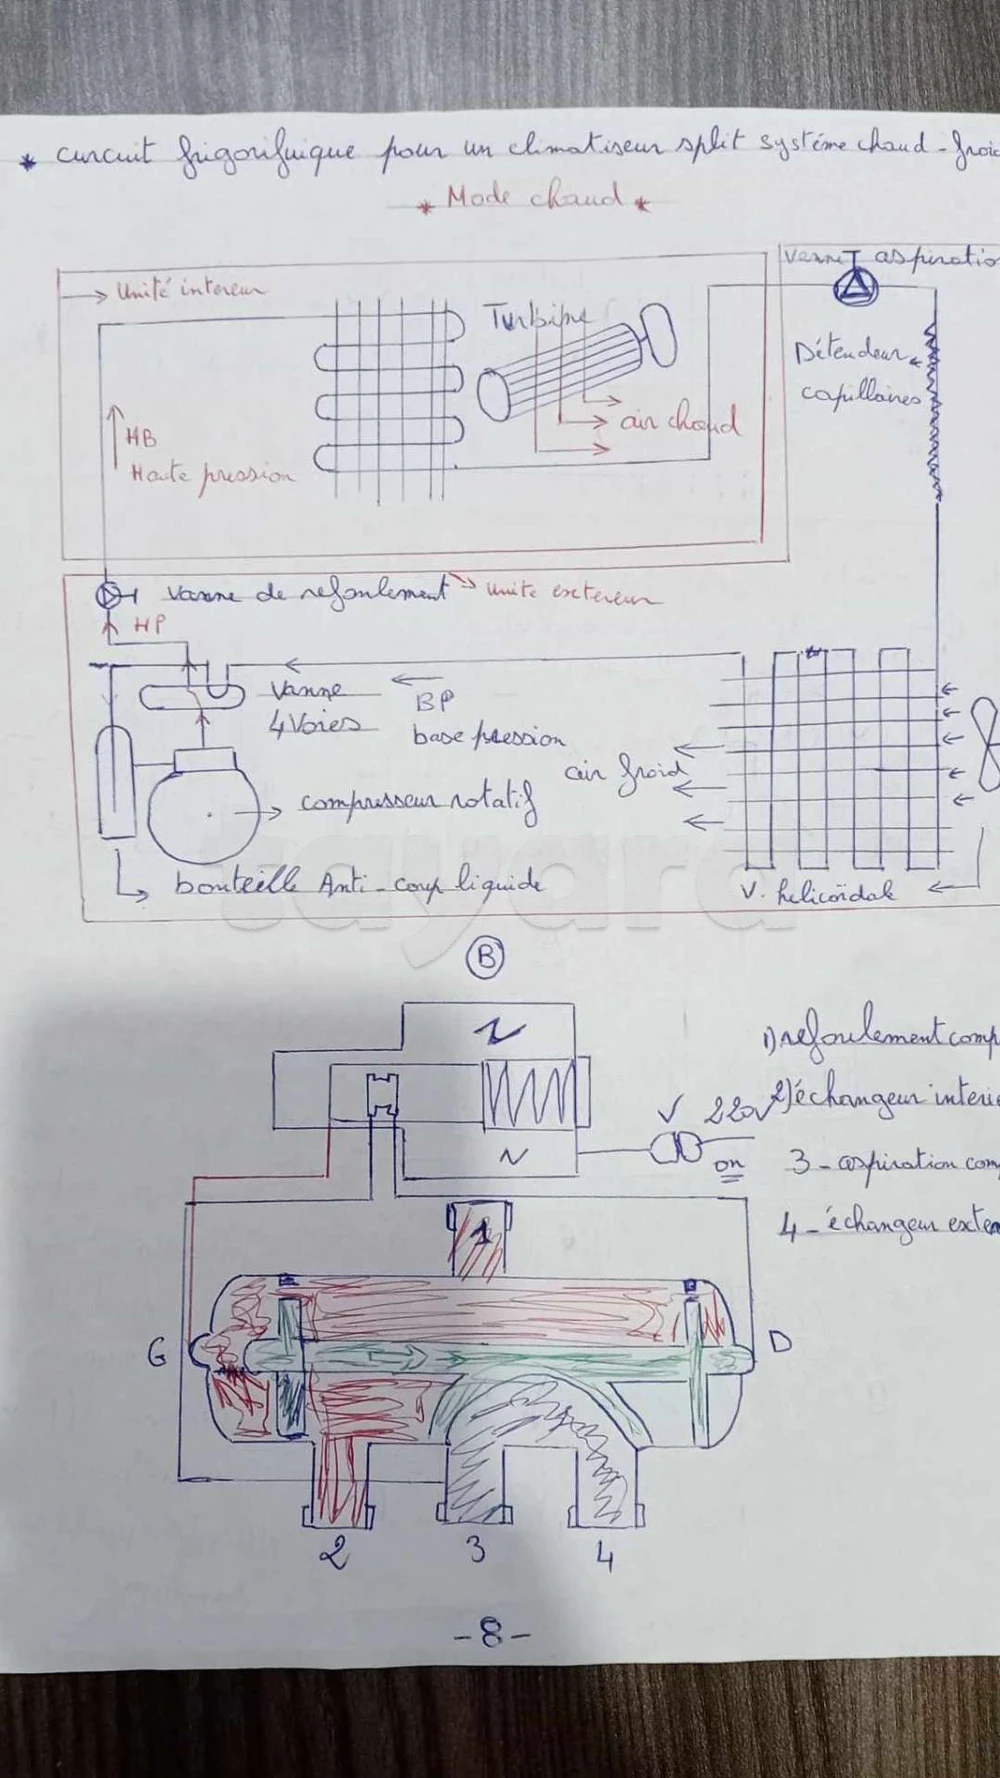 * circuit frigorifuique pour un climatiseur split systéme chaud-froid
* Mode chaud *
Vanne aspiration
Unité intereur
Turbine
Détendeur
capillaires
air chaud
HB
Haute pression
Vanne de refoulement
Unite extereur
HP
Vanne
4 Voies
BP
base pression
air froid
compresseur rotatif
bouteille Anti-coup liquide
V. helicoïdale
tayara
B
1) refoulement comp
V 220V
2) échangeur interie
on
3 - aspiration com
4 - échangeur exte
1
G
D
2
3
4
-8-